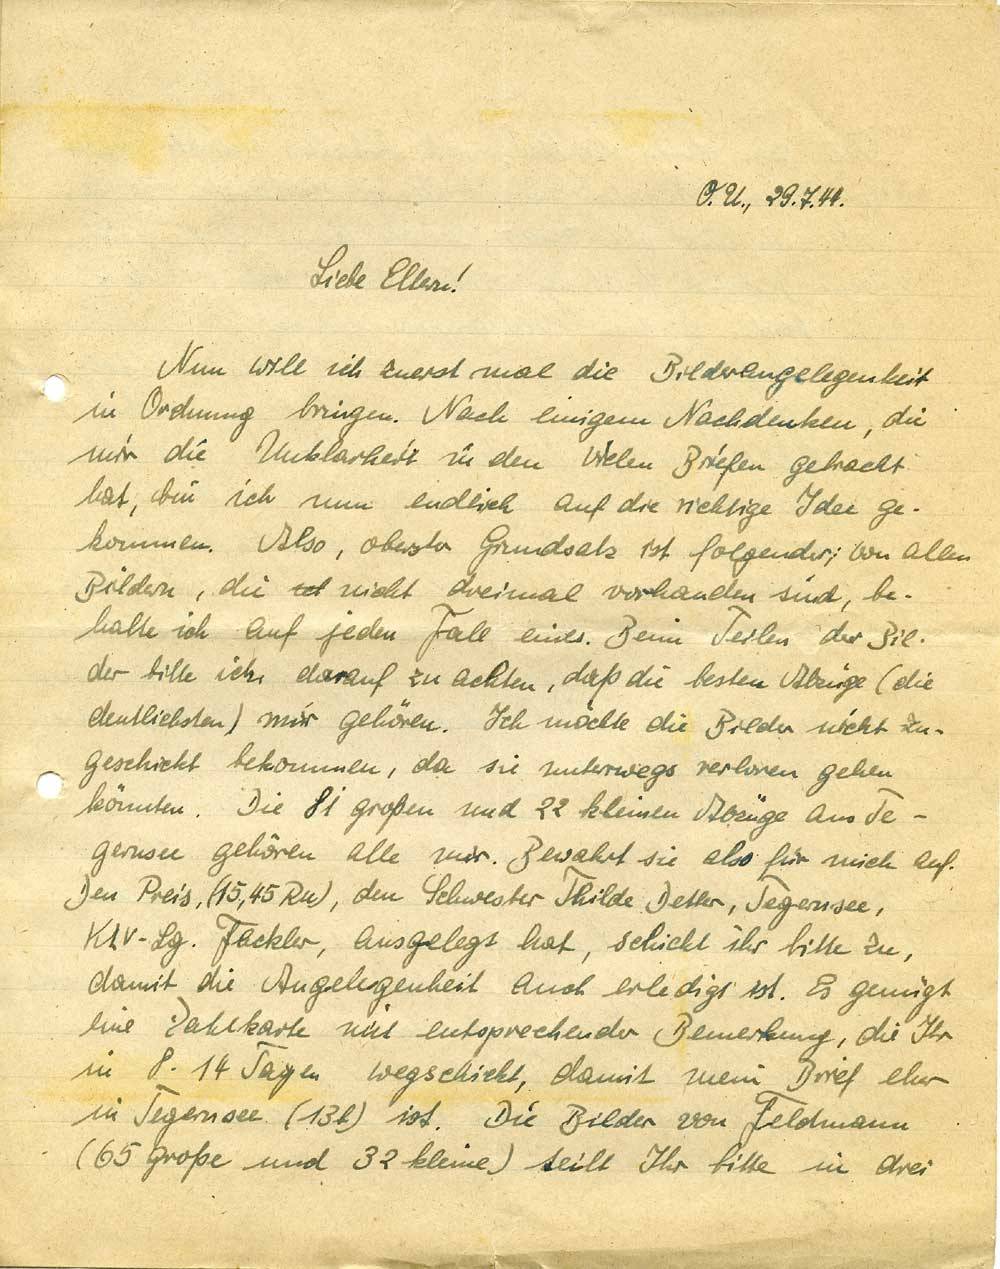 O.U., 29.7.44.
Liebe Eltern!
Nun will ich zuerst mal die Bilderangelegenheit
in Ordnung bringen. Nach einigem Nachdenken, die
mir die Unklarheit in den vielen Briefen gebracht
hat, bin ich nun endlich auf die richtige Idee ge-
kommen. Also, oberster Grundsatz ist folgender; von allen
Bildern, die nicht dreimal vorhanden sind, be-
halte ich auf jeden Fall eines. Beim Teilen der Bil-
der bitte ich darauf zu achten, daß die besten Abzüge (die
deutlichsten) mir gehören. Ich möchte die Bilder nicht zu-
geschickt bekommen, da sie unterwegs verloren gehen
könnten. Die 81 großen und 22 kleinen Abzüge aus Te-
gernsee gehören alle mir. Bewahrt sie also für mich auf.
Den Preis, (15,45 RM), den Schwester Thilde Detter, Tegernsee,
KLV-Lg. Fackler, ausgelegt hat, schickt ihr bitte zu,
damit die Angelegenheit auch erledigt ist. Es genügt
eine Zahlkarte mit entsprechender Bemerkung, die Ihr
in 8-14 Tagen wegschickt, damit mein Brief eher
in Tegernsee (13b) ist. Die Bilder von Feldmann
(65 große und 32 kleine) teilt Ihr bitte in drei